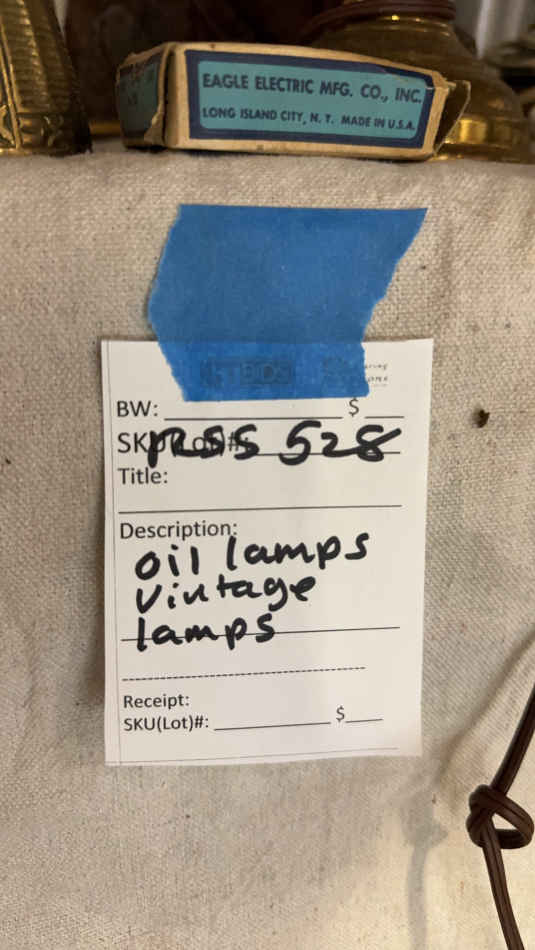 EAGLE ELECTRIC MFG. CO., INC.
LONG ISLAND CITY, N. Y. MADE IN U.S.A.
BW: $
SKU(Lot)#: RSS 528
Title:
Description:
oil lamps
vintage
lamps
Receipt:
SKU(Lot)#: $